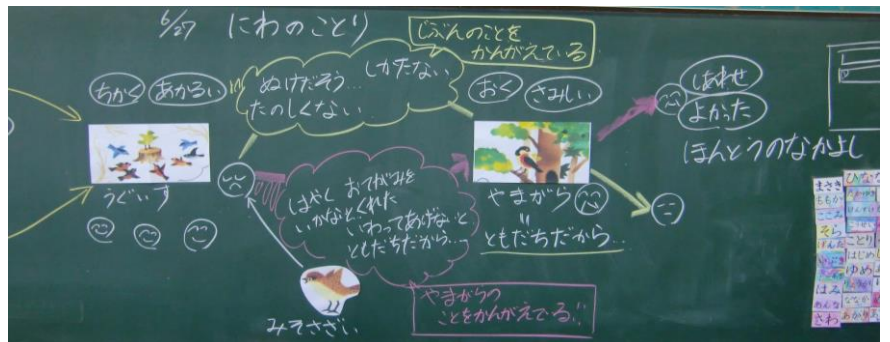 6/27 にわのことり
じぶんのことを
かんがえている
ちかく
あかるい
ぬけだそう… しかたない
たのしくない
おく
さみしい
しあわせ
よかった
ほんとうのなかよし
うぐいす
はやく おてがみを
いかなきゃ くれた
いわってあげないと
ともだちだから…
やまがら
=
ともだちだから…
みそさざい
やまがらの
ことをかんがえてる!!
まさき
ももか
こころ
そら
はみ
さわ
ことり
はじめ
ゆめ
ななか